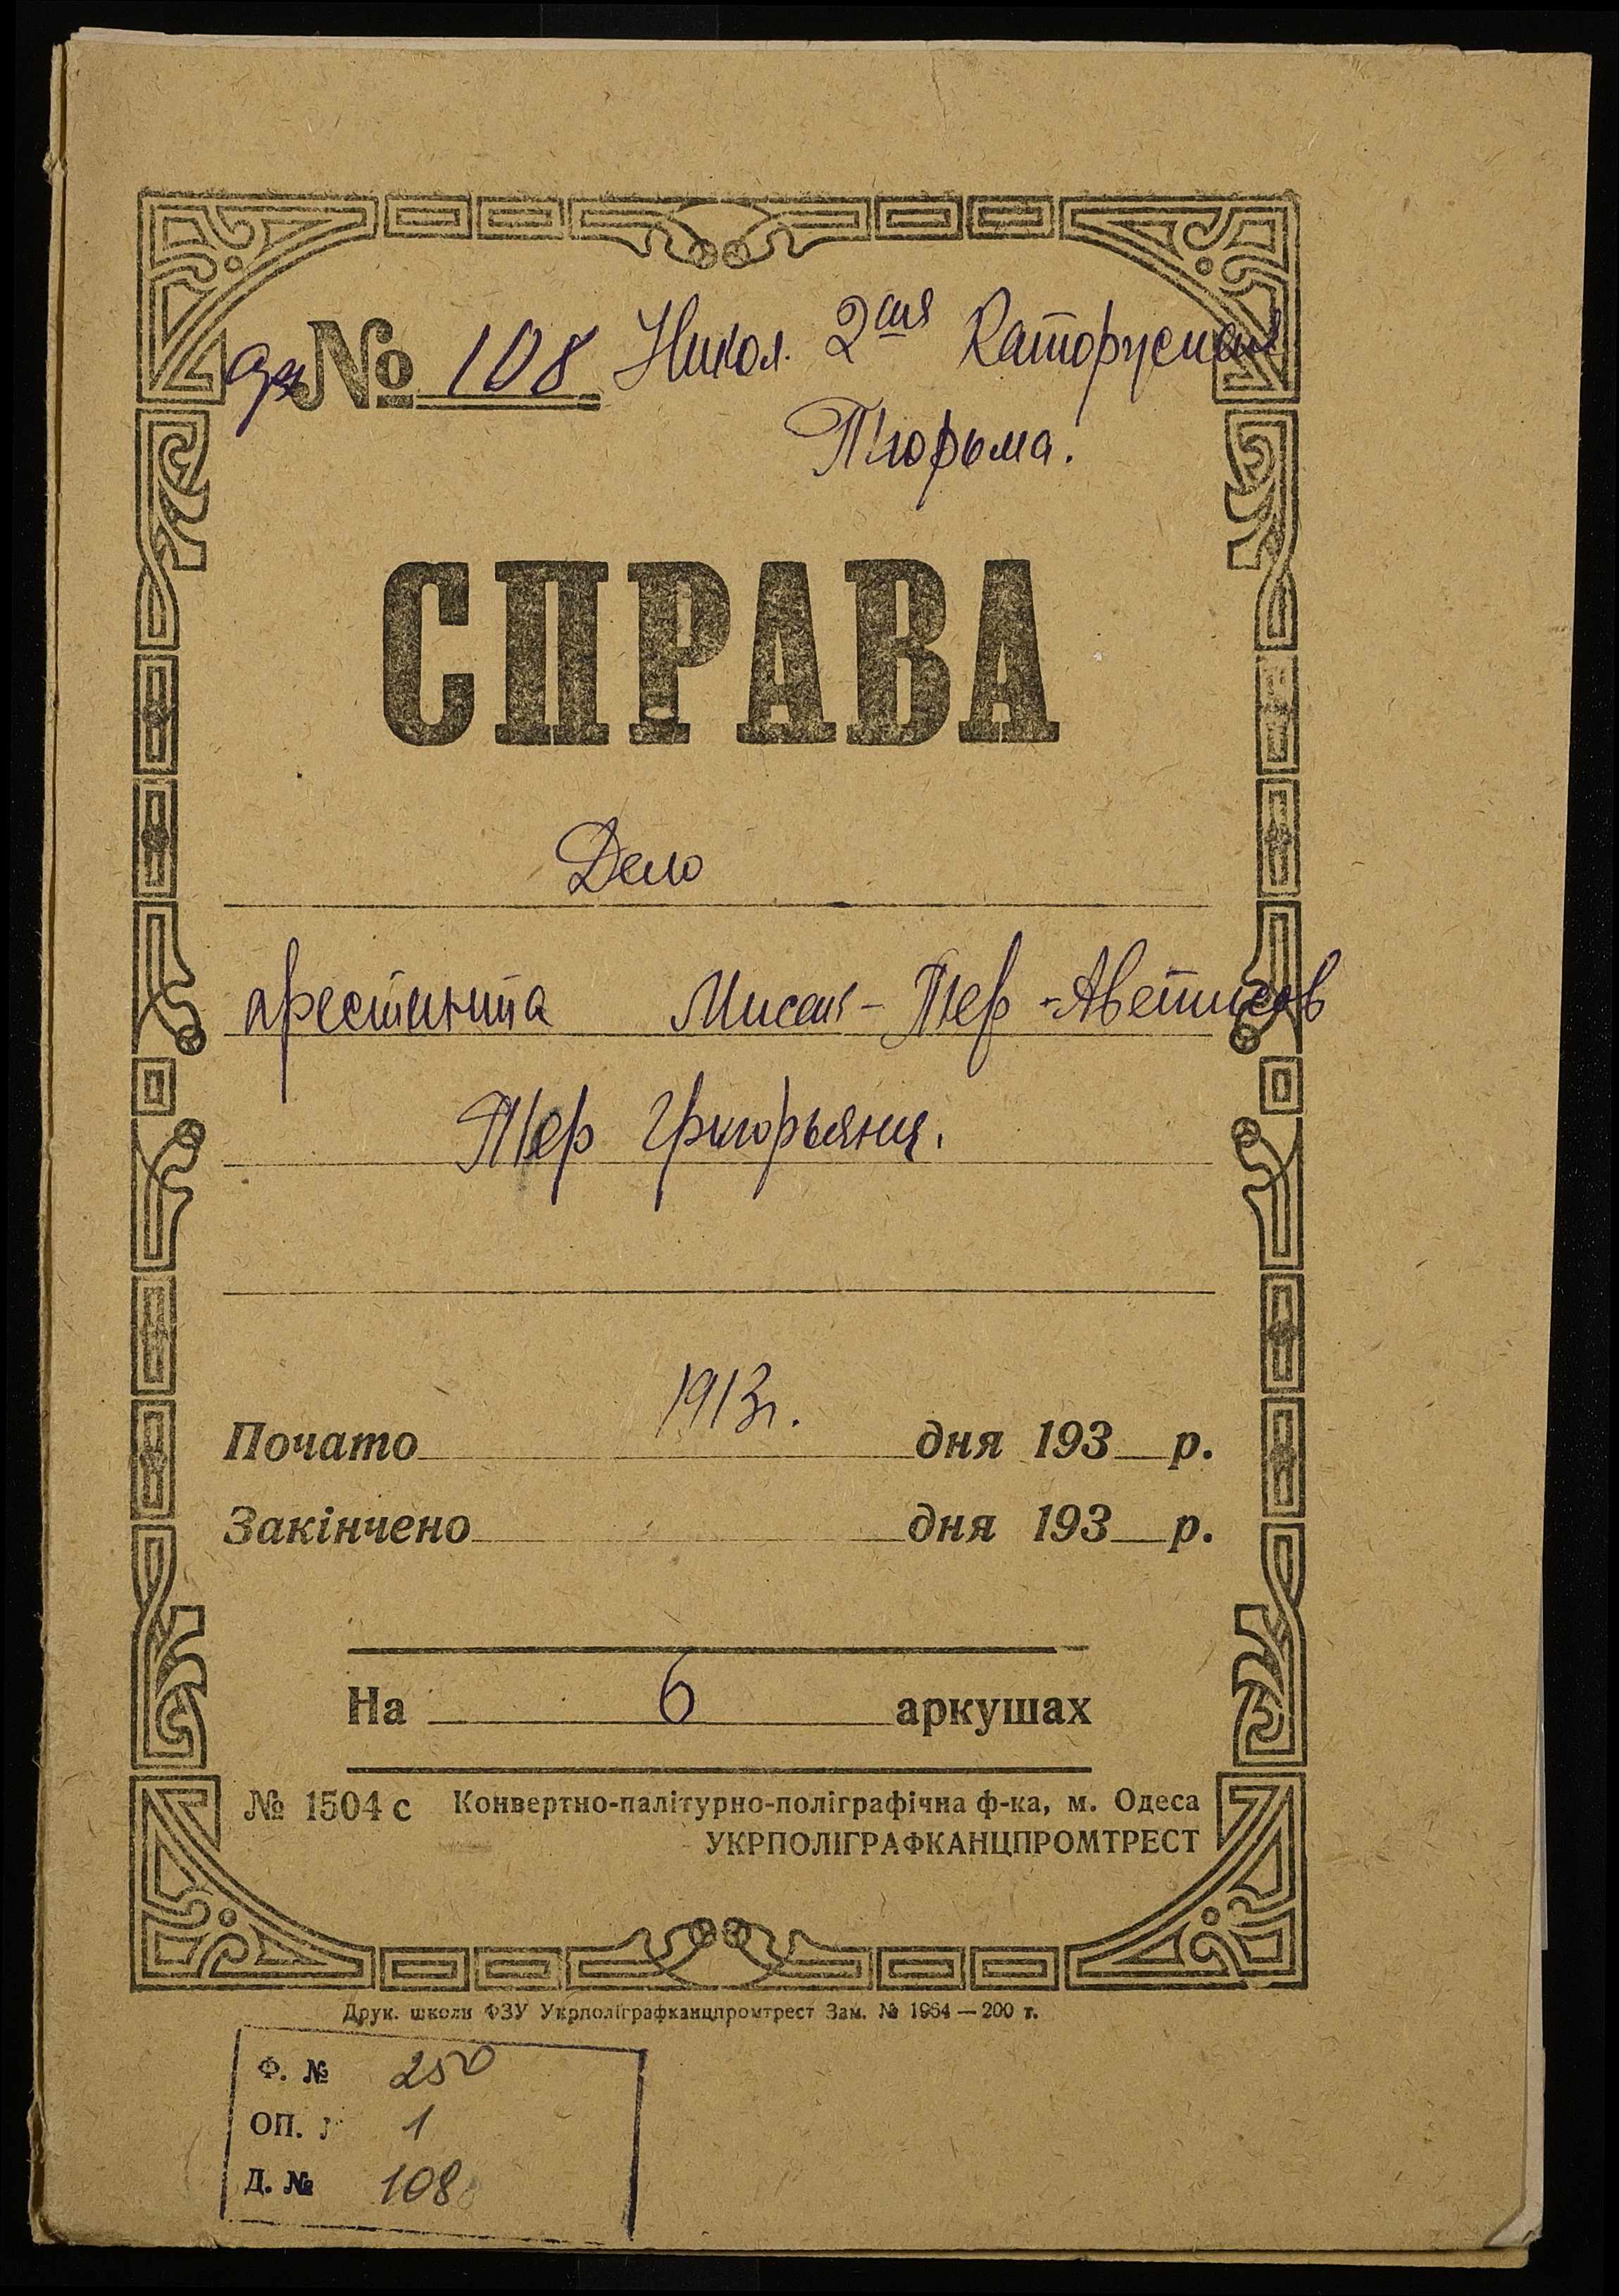 № 108 Никол. 2ая Каторжная
Тюрьма.
СПРАВА
Дело
арестанта Мисак-Тер-Аветисов
Тер Григорьянц.
1913г.
Почато дня 193 р.
Закінчено дня 193 р.
На 6 аркушах
№ 1504 с Конвертно-палітурно-поліграфічна ф-ка, м. Одеса
УКРПОЛІГРАФКАНЦПРОМТРЕСТ
Друк. школи ФЗУ Укрполіграфканцпромтрест Зам. № 1964 — 200 т.
Ф. № 250
ОП. 1
Д. № 108